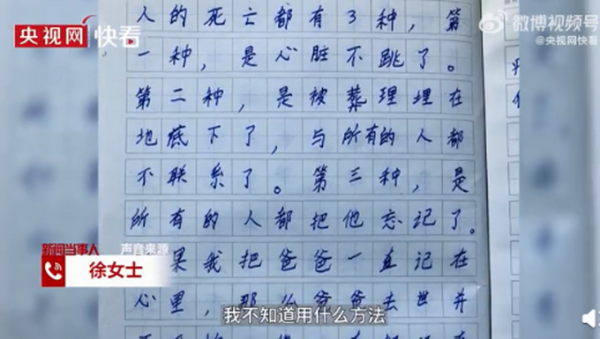 央视网 快看
微博视频号
@央视网快看
人的死亡都有3种,第
一种,是心脏不跳了。
第二种,是被葬理埋在
地底下了,与所有的人都
不联系了。第三种,是
所有的人都把他忘记了。
果我把爸爸一直记在
心里,那么爸爸去世并
新闻当事人 声音来源
徐女士
我不知道用什么方法